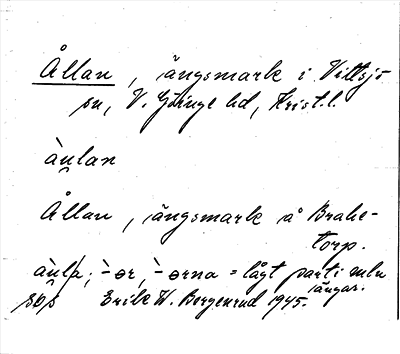 Ållan, ängsmark i Vittsjö
sn, V. Göinge hd, Krist. l.
àu̯lan
Ållan, ängsmark å Brahe-
torp.
-ər, -ərna = lågt parti
ängar.
Erik W. Bergenrud 1945.